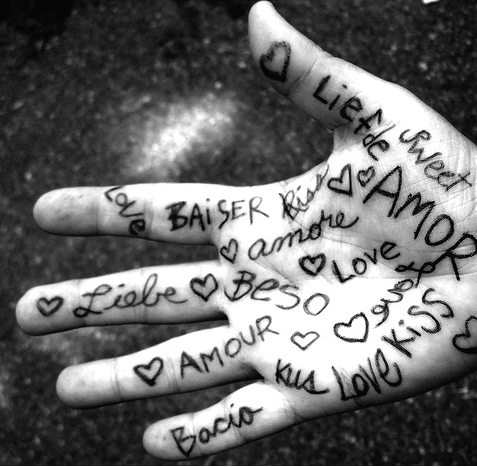 Liefde
sweet
Love
BAiSER
Kiss
AMOR
amore
Love
Liebe
BESO
Love
AMOUR
Kiss
kus
Love
Bacio